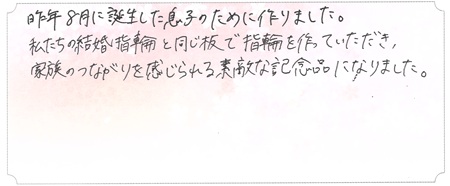 昨年8月に誕生した息子のために作りました。
私たちの結婚指輪と同じ板で指輪を作っていただき、
家族のつながりを感じられる素敵な記念品になりました。